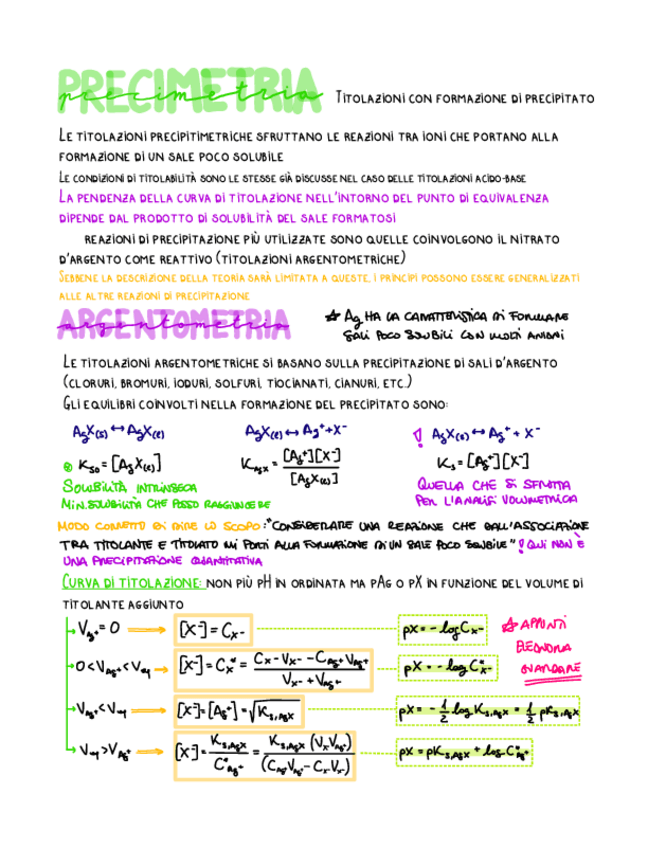 PRECIMETRIA
precimetria TITOLAZIONI CON FORMAZIONE DI PRECIPITATO
LE TITOLAZIONI PRECIPITIMETRICHE SFRUTTANO LE REAZIONI TRA IONI CHE PORTANO ALLA
FORMAZIONE DI UN SALE POCO SOLUBILE
LE CONDIZIONI DI TITOLABILITÀ SONO LE STESSE GIÀ DISCUSSE NEL CASO DELLE TITOLAZIONI ACIDO-BASE
LA PENDENZA DELLA CURVA DI TITOLAZIONE NELL'INTORNO DEL PUNTO DI EQUIVALENZA
DIPENDE DAL PRODOTTO DI SOLUBILITÀ DEL SALE FORMATOSI
REAZIONI DI PRECIPITAZIONE PIÙ UTILIZZATE SONO QUELLE COINVOLGONO IL NITRATO
D'ARGENTO COME REATTIVO (TITOLAZIONI ARGENTOMETRICHE)
SEBBENE LA DESCRIZIONE DELLA TEORIA SARÀ LIMITATA A QUESTE, I PRINCIPI POSSONO ESSERE GENERALIZZATI
ALLE ALTRE REAZIONI DI PRECIPITAZIONE
ARGENTOMETRIA
argentometria
☆ Ag HA LA CARATTERISTICA DI FORMARE
SALI POCO SOLUBILI CON MOLTI ANIONI
LE TITOLAZIONI ARGENTOMETRICHE SI BASANO SULLA PRECIPITAZIONE DI SALI D'ARGENTO
(CLORURI, BROMURI, IODURI, SOLFURI, TIOCIANATI, CIANURI, ETC.)
GLI EQUILIBRI COINVOLTI NELLA FORMAZIONE DEL PRECIPITATO SONO:
AgX(s) ↔ AgX(l) AgX(l) ↔ Ag⁺+X⁻ ! AgX(s) ↔ Ag⁺ + X⁻
Ks₀ = [AgX(l)] K_AgX = [Ag⁺][X⁻] / [AgX(l)] Ks = [Ag⁺][X⁻]
SOLUBILITÀ INTRINSECA
MIN. SOLUBILITÀ CHE POSSO RAGGIUNGERE
QUELLA CHE SI SFRUTTA
PER L'ANALISI VOLUMETRICA
MODO CORRETTO DI DIRE LO SCOPO: "CONSIDERARE UNA REAZIONE CHE DALL'ASSOCIAZIONE
TRA TITOLANTE E TITOLATO MI PORTI ALLA FORMAZIONE DI UN SALE POCO SOLUBILE" ! QUI NON È
UNA PRECIPITAZIONE QUANTITATIVA
CURVA DI TITOLAZIONE: NON PIÙ PH IN ORDINATA MA PAG O PX IN FUNZIONE DEL VOLUME DI
TITOLANTE AGGIUNTO
V_Ag⁺ = 0 → [X⁻] = C_X⁻ pX = - log C_X⁻
☆ APPUNTI
ELEONORA
0 < V_Ag⁺ < V_eq → [X⁻] = C*_X⁻ = (C_X⁻ V_X⁻ - C_Ag⁺ V_Ag⁺) / (V_X⁻ + V_Ag⁺) pX = - log C*_X⁻
V_Ag⁺ < V_eq → [X⁻] = [Ag⁺] = √K_s,AgX pX = - 1/2 log K_s,AgX = 1/2 pK_s,AgX
V_eq > V_Ag⁺ → [X⁻] = K_s,AgX / C*_Ag⁺ = K_s,AgX (V_X⁻ V_Ag⁺) / (C_Ag⁺ V_Ag⁺ - C_X⁻ V_X⁻) pX = pK_s,AgX + log C*_Ag⁺